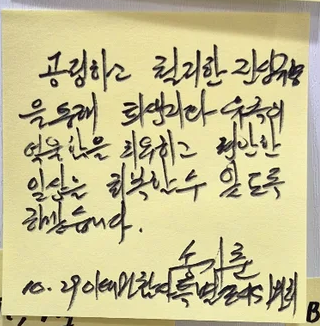 공정하고 철저한 진상규명
을 통해 희생자와 유족의
억울함을 치유하고 편안한
일상을 회복할 수 있도록
하겠습니다.
송기춘
10.29이태원참사특별조사위원회
B